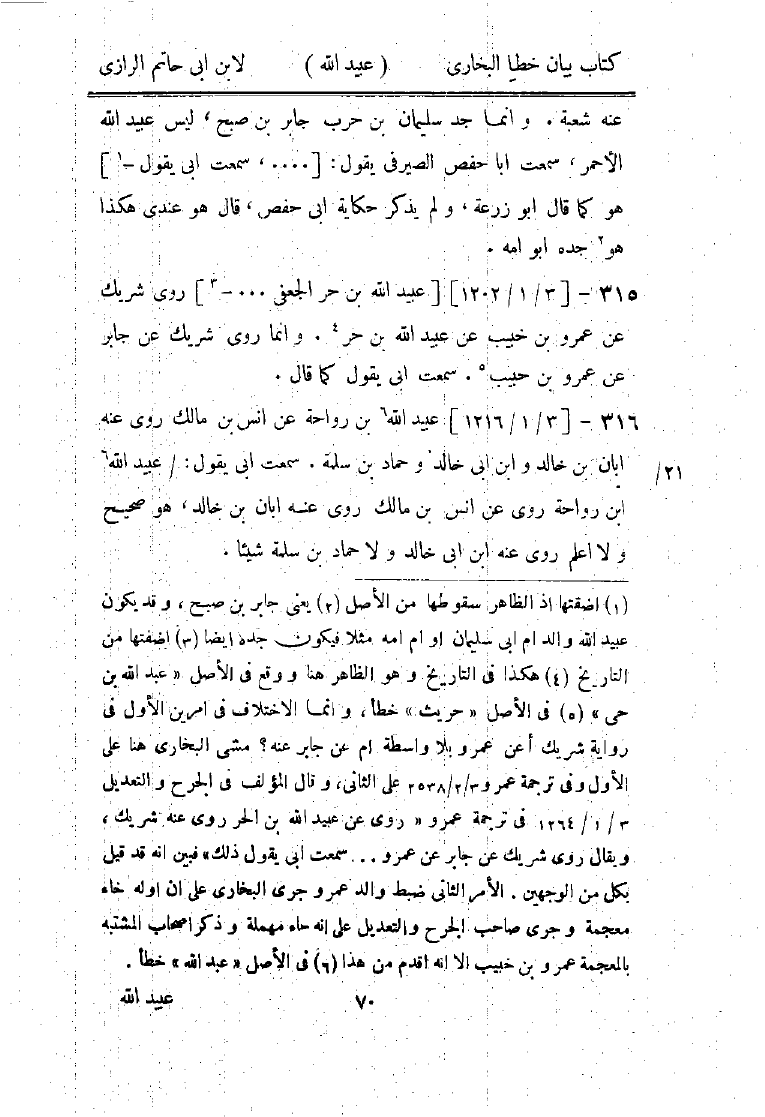 كتاب بيان خطا البخارى ( عبيد الله ) لابن ابى حاتم الرازى
عنه شعبة . و انما جد سليمان بن حرب جابر بن صبح ، ليس عبيد الله
الأحمر ، سمعت ابا حفص الصيرفى يقول : [ .... ، سمعت ابى يقول -١ ]
هو كما قال ابو زرعة ، و لم يذكر حكاية ابى حفص ، قال هو عندى هكذا
هو٢ جده ابو امه .
٣١٥ - [ ٣ / ١ / ١٢٠٢ ] [ عبيد الله بن حر الجعفى ... -٣ ] روى شريك
عن عمرو بن خبيب عن عبيد الله بن حر٤ . و انما روى شريك عن جابر
عن عمرو بن حبيب٥ . سمعت ابى يقول كما قال .
٣١٦ - [ ٣ / ١ / ١٢١٦ ] عبيد الله٦ بن رواحة عن انس بن مالك روى عنه
ابان بن خالد و ابن ابى خالد و حماد بن سلمة . سمعت ابى يقول : / عبيد الله٦
٢١/
ابن رواحة روى عن انس بن مالك روى عنه ابان بن خالد ، هو صحيح
و لا اعلم روى عنه ابن ابى خالد و لا حماد بن سلمة شيئا .
(١) اضفتها اذ الظاهر سقوطها من الأصل (٢) يعنى جابر بن صبح ، و قد يكون
عبيد الله والد ام ابى سليمان او ام امه مثلا فيكون جده ايضا (٣) اضفتها من
التاريخ (٤) هكذا فى التاريخ و هو الظاهر هنا و وقع فى الأصل « عبد الله بن
حى » (٥) فى الأصل « حريث » خطأ ، و انما الاختلاف فى امرين الأول فى
رواية شريك أعن عمرو بلا واسطة ام عن جابر عنه ؟ مشى البخارى هنا على
الأول وفى ترجمة عمرو ٣/٢/٢٥٣٨ على الثانى، و قال المؤلف فى الجرح و التعديل
٣ / ١ / ١٢٦٤ فى ترجمة عمرو « روى عن عبيد الله بن الحر روى عنه شريك ،
ويقال روى شريك عن جابر عن عمرو ... سمعت ابى يقول ذلك » فبين انه قد قيل
بكل من الوجهين . الأمر الثانى ضبط والد عمرو جرى البخارى على ان اوله خاء
معجمة و جرى صاحب الجرح والتعديل على انه حاء مهملة و ذكر اصحاب المشتبه
بالمعجمة عمرو بن خبيب الا انه اقدم من هذا (٦) فى الأصل « عبد الله » خطأ .
٧٠ عبيد الله